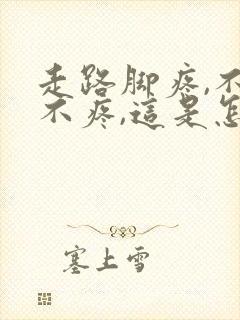 走路脚疼,不
不疼,這是怎
塞上雪